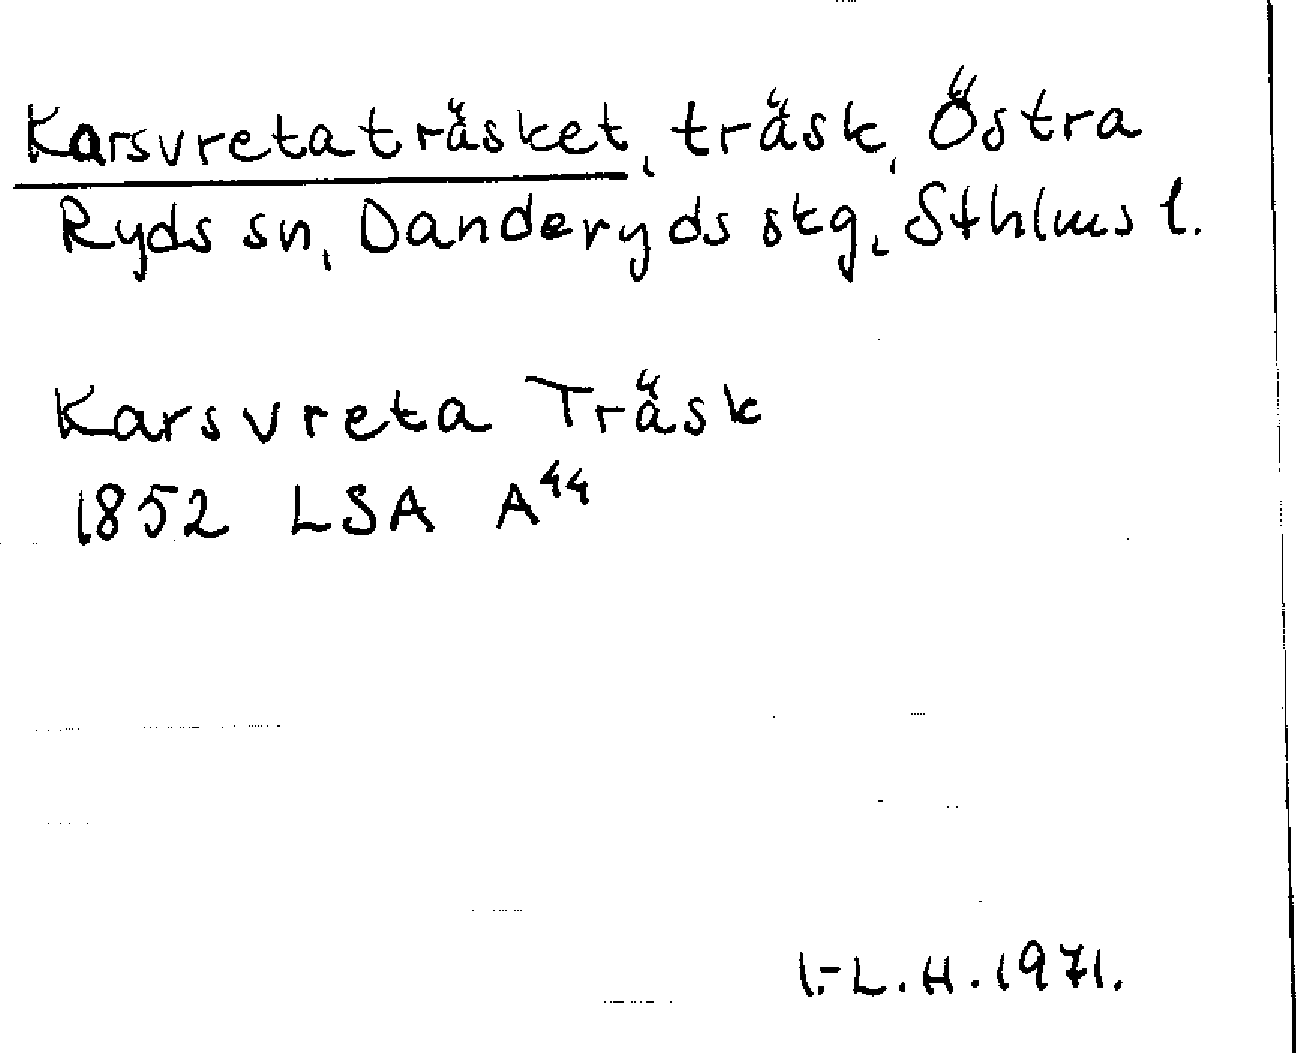 Karsvretaträsket, träsk, Östra
Ryds sn, Danderyds skg, Sthlms l.
Karsvreta Träsk
1852 LSA A⁴⁴
I.-L.H. 1971.